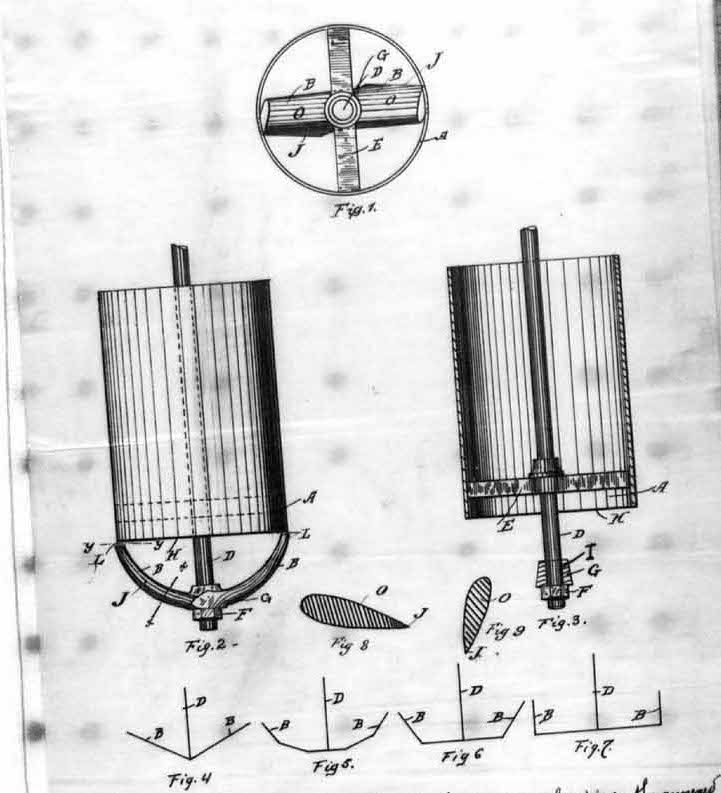 G
D
B
J
B
O
O
J
E
A
Fig. 1.
A
L
y
y
L
H
D
B
B
J
G
F
Fig. 2-
A
E
H
D
I
G
F
Fig. 3.
O
J
Fig 8
O
J.
Fig 9
D
B
B
Fig. 4
D
B
B
Fig 5.
D
B
B
Fig 6
D
B
B
Fig. 7.